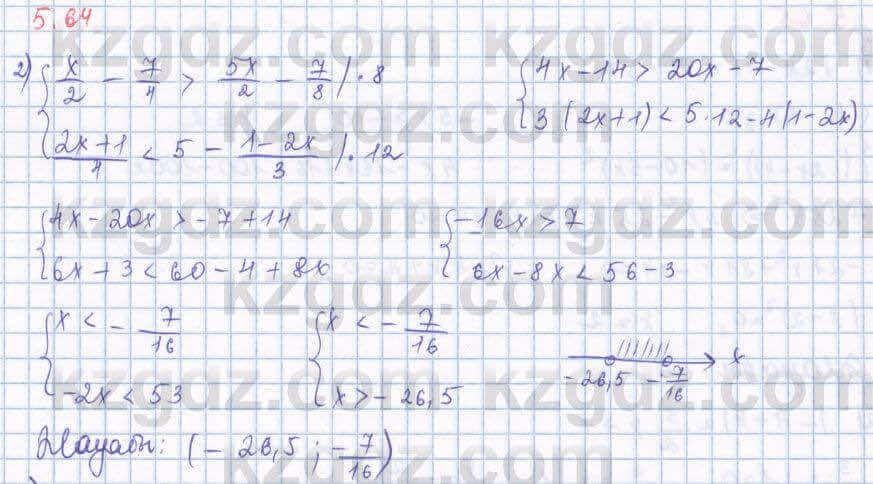 5.64
2) { x/2 - 7/4 > 5x/2 - 7/8 | · 8
{ (2x+1)/4 < 5 - (1-2x)/3 | · 12
{ 4x-14 > 20x-7
{ 3(2x+1) < 5·12-4(1-2x)
{ 4x-20x > -7+14
{ 6x+3 < 60-4+8x
{ -16x > 7
{ 6x-8x < 56-3
{ x < - 7/16
{ -2x < 53
{ x < - 7/16
{ x > -26,5
-26,5 -7/16 x
Жауабы: (-26,5 ; -7/16)
kzgdz.com